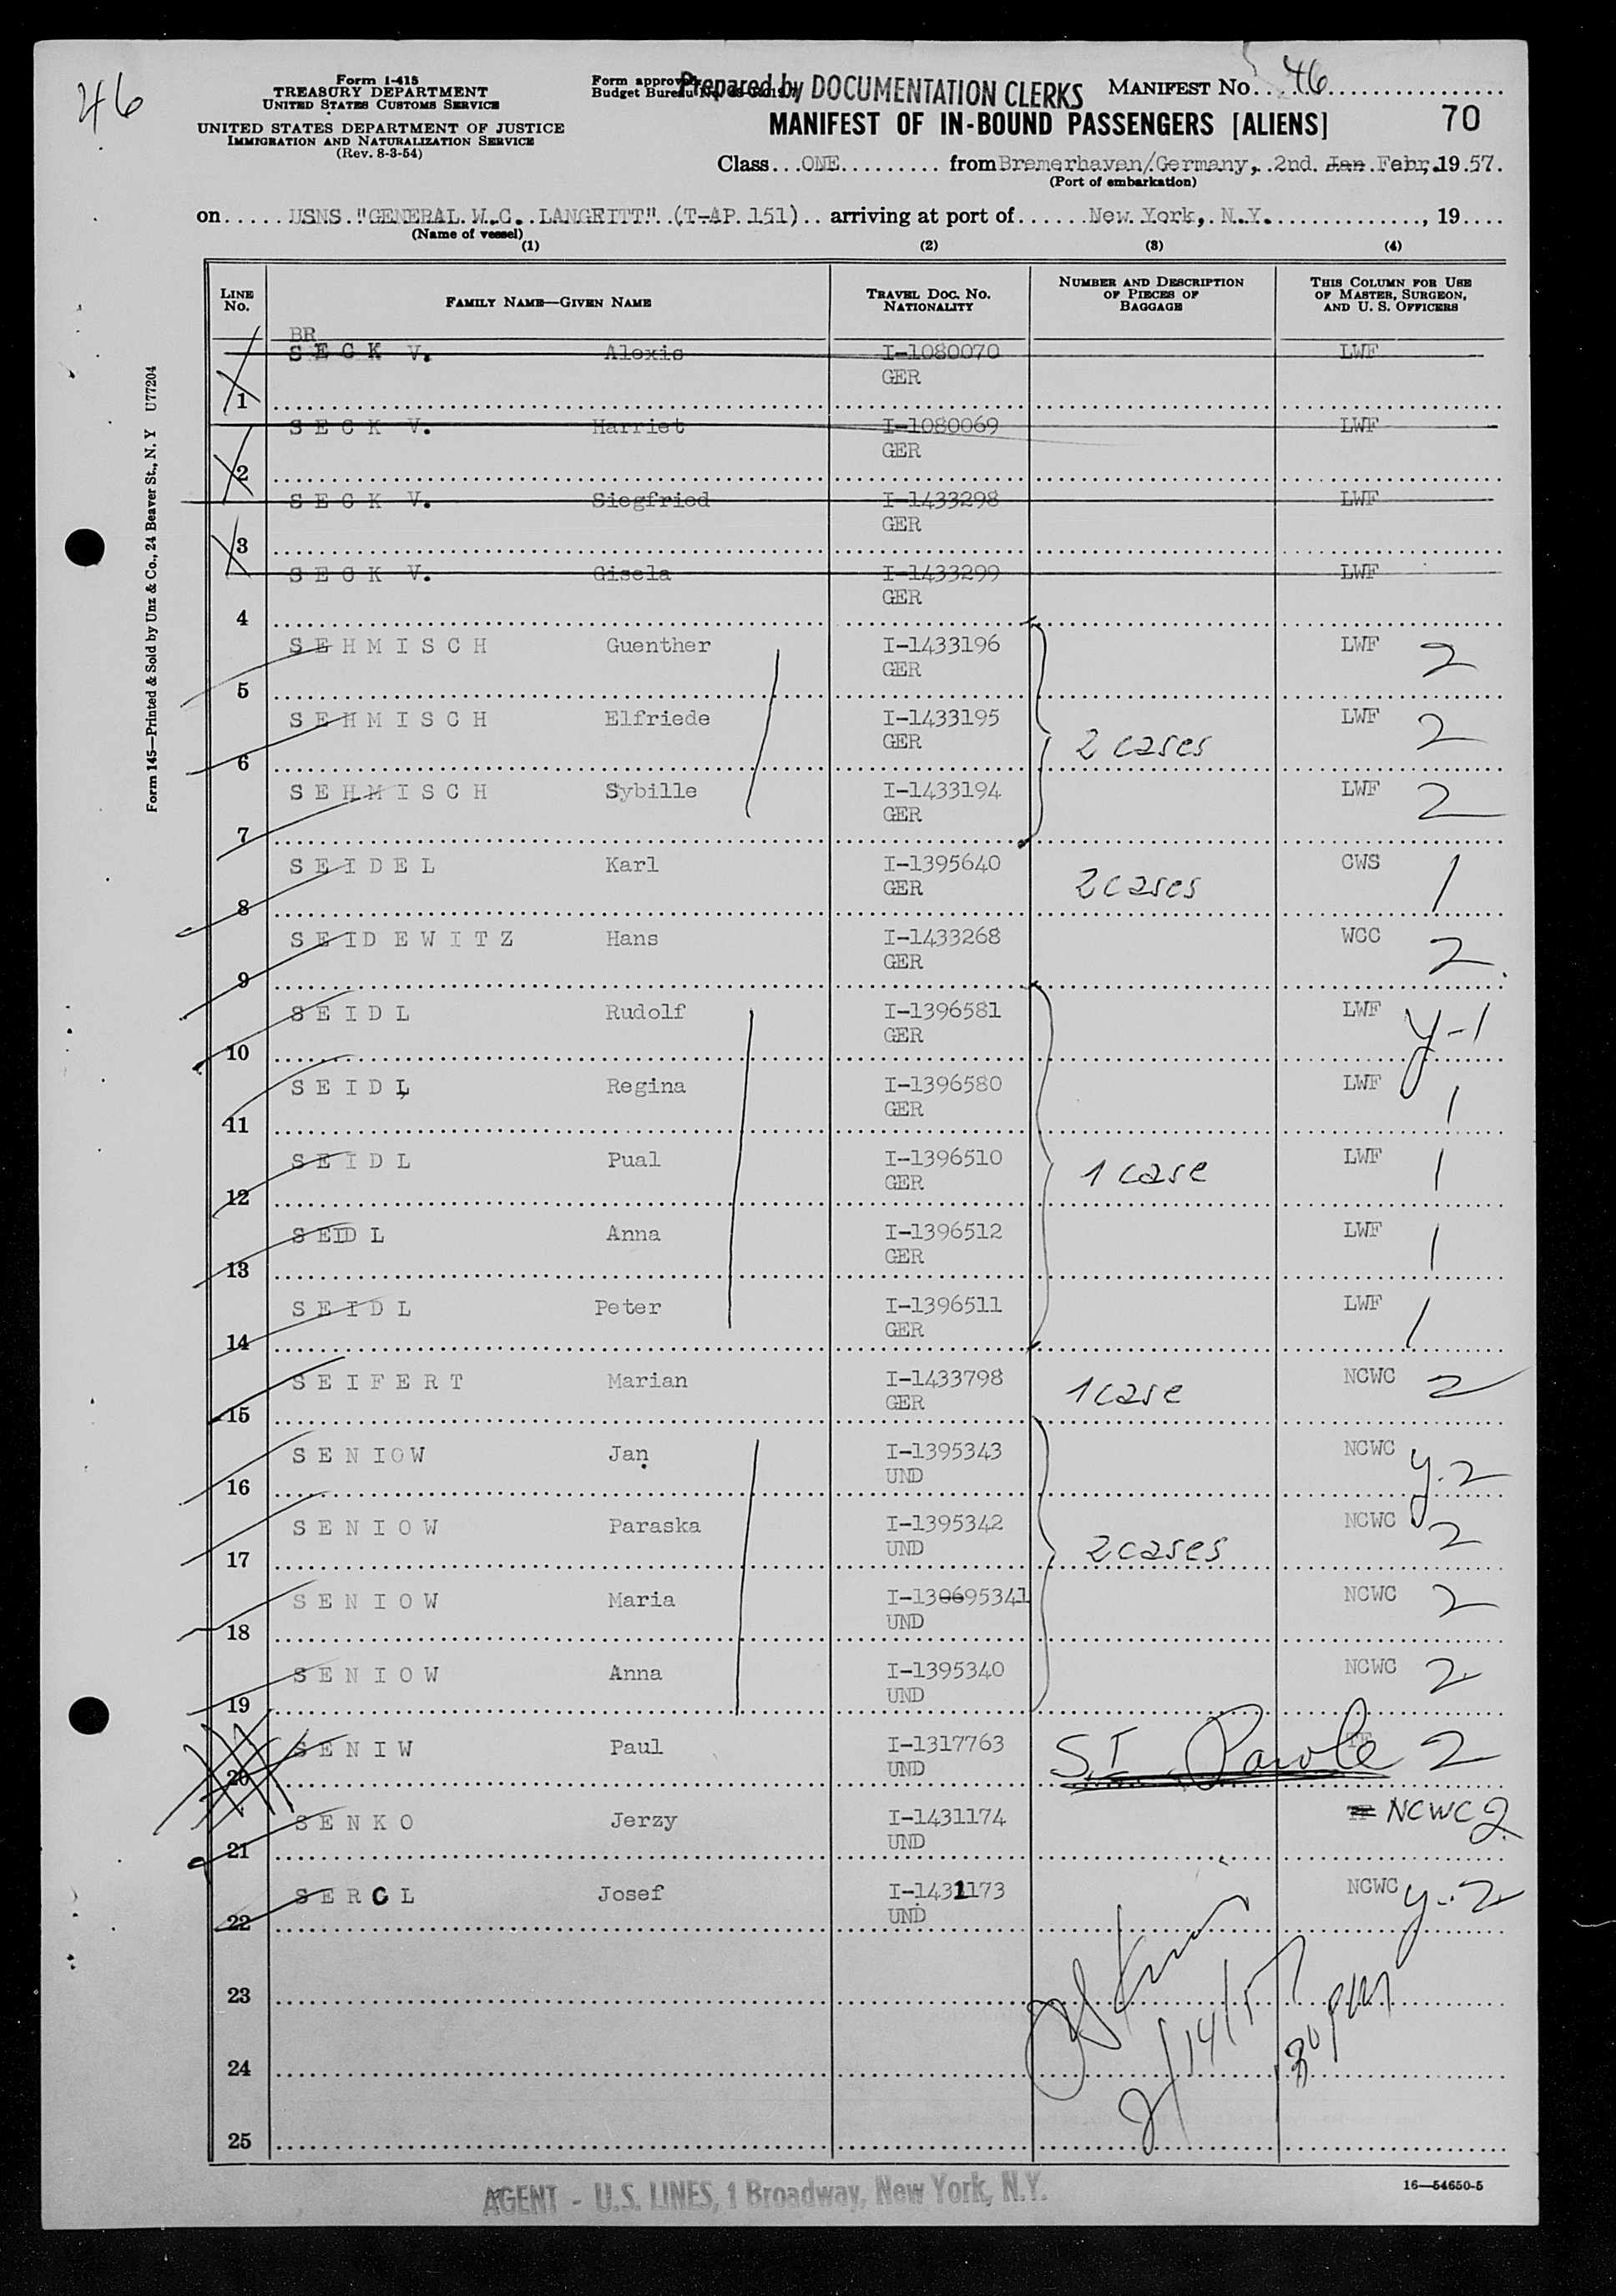 46
Form I-415
TREASURY DEPARTMENT
UNITED STATES CUSTOMS SERVICE
UNITED STATES DEPARTMENT OF JUSTICE
IMMIGRATION AND NATURALIZATION SERVICE
(Rev. 8-3-54)
Form approved
Budget Bureau No.
Prepared by DOCUMENTATION CLERKS
MANIFEST NO. 46
MANIFEST OF IN-BOUND PASSENGERS [ALIENS]
70
Class ONE from Bremerhaven/Germany, 2nd. Jan Febr, 1957.
(Port of embarkation)
on USNS "GENERAL W.C. LANGFITT" (T-AP 151) arriving at port of New York, N.Y. , 19
(Name of vessel)
(1) (2) (3) (4)
LINE No. FAMILY NAME—GIVEN NAME TRAVEL DOC. NO. NATIONALITY NUMBER AND DESCRIPTION OF PIECES OF BAGGAGE THIS COLUMN FOR USE OF MASTER, SURGEON, AND U. S. OFFICERS
BR
SECK V. Alexis I-1080070 LWF
GER
1
SECK V. Harriet I-1080069 LWF
GER
2
SECK V. Siegfried I-1433298 LWF
GER
3
SECK V. Gisela I-1433299 LWF
GER
4
SEHMISCH Guenther I-1433196 LWF 2
GER
5
SEHMISCH Elfriede I-1433195 LWF 2
GER 2 cases
6
SEHMISCH Sybille I-1433194 LWF 2
GER
7
SEIDEL Karl I-1395640 CWS 1
GER 2 cases
8
SEIDEWITZ Hans I-1433268 WCC 2
GER
9
SEIDL Rudolf I-1396581 LWF y-1
GER
10
SEIDL Regina I-1396580 LWF 1
GER
11
SEIDL Pual I-1396510 1 case LWF 1
GER
12
SEIDL Anna I-1396512 LWF 1
GER
13
SEIDL Peter I-1396511 LWF 1
GER
14
SEIFERT Marian I-1433798 1 case NCWC 2
GER
15
SENIOW Jan I-1395343 NCWC y-2
UND
16
SENIOW Paraska I-1395342 NCWC 2
UND 2 cases
17
SENIOW Maria I-130695341 NCWC 2
UND
18
SENIOW Anna I-1395340 NCWC 2
UND
19
SENIW Paul I-1317763 S.I. Parole TF 2
UND
20
SENKO Jerzy I-1431174 NCWC 2
UND
21
SERCL Josef I-1431173 NCWC y-2
UND
22
23
2/14/57
24
25
AGENT - U.S. LINES, 1 Broadway, New York, N.Y.
16—54650-5
Form 145—Printed & Sold by Unz & Co., 24 Beaver St., N. Y U77204